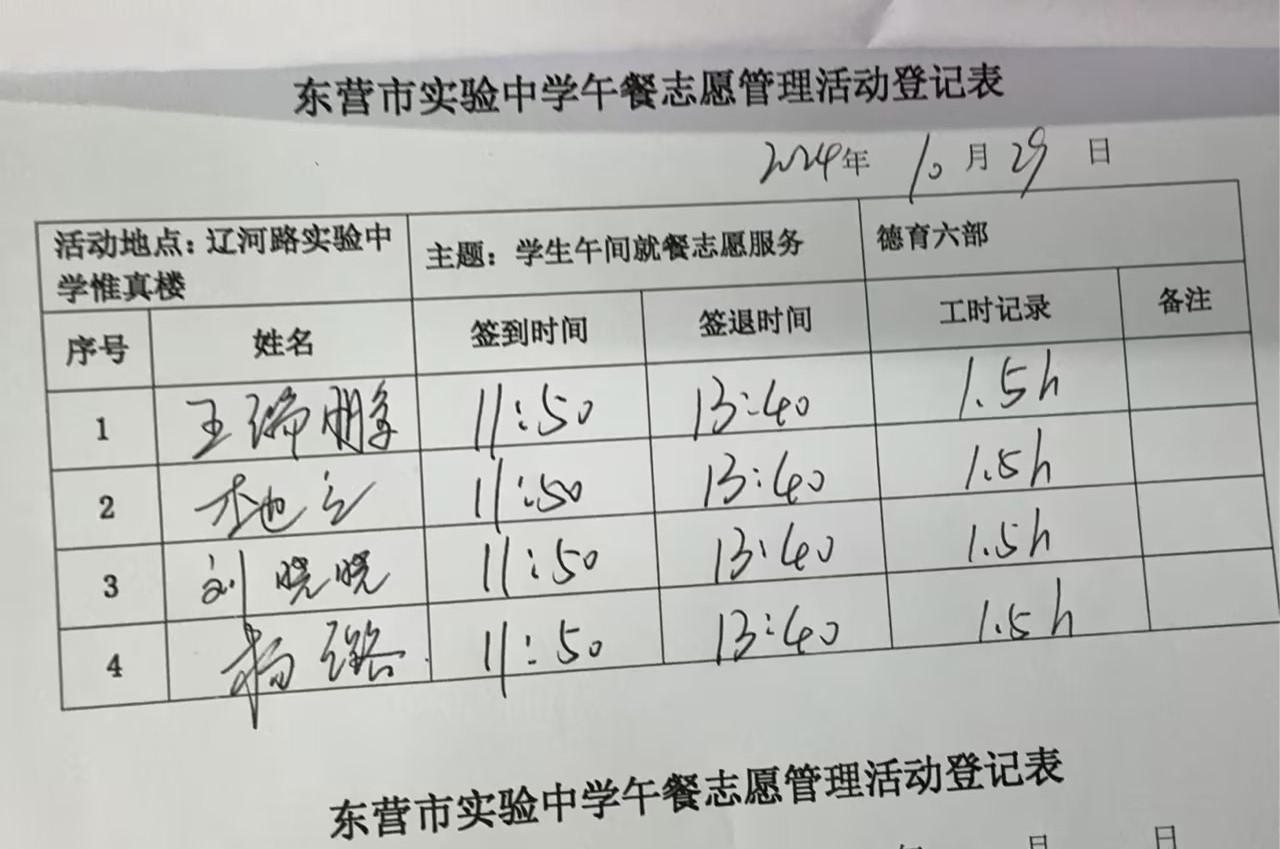 东营市实验中学午餐志愿管理活动登记表
2024年 10月 29 日
活动地点：辽河路实验中学惟真楼 主题：学生午间就餐志愿服务 德育六部
序号 姓名 签到时间 签退时间 工时记录 备注
1 王瑞鹏 11:50 13:40 1.5h
2 11:50 13:40 1.5h
3 刘晓晓 11:50 13:40 1.5h
4 杨璐 11:50 13:40 1.5h
东营市实验中学午餐志愿管理活动登记表
年 月 日